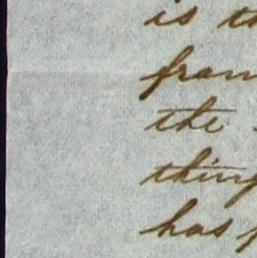 is th
from
the
thing
has